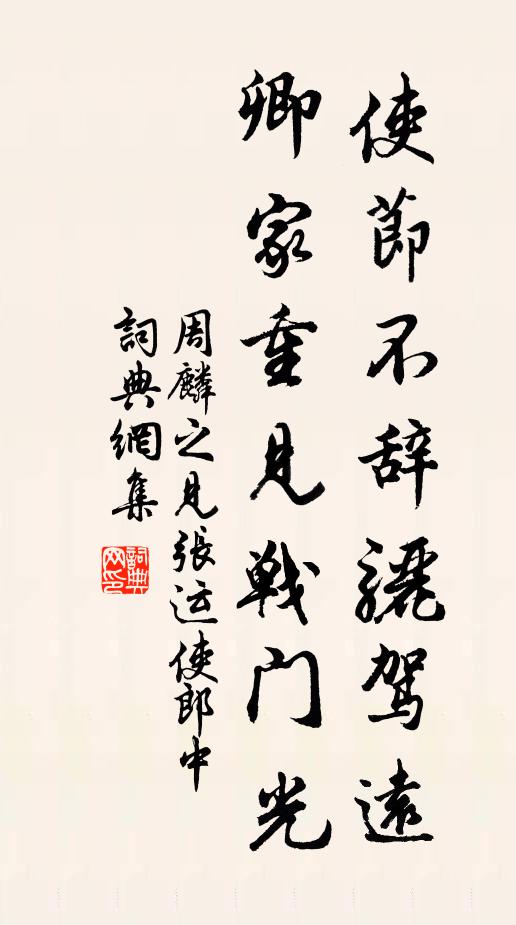 使節不辞驪駕遠
卿家重見戟門光
周麟之見張运使郎中
詞典網集
詞典网印